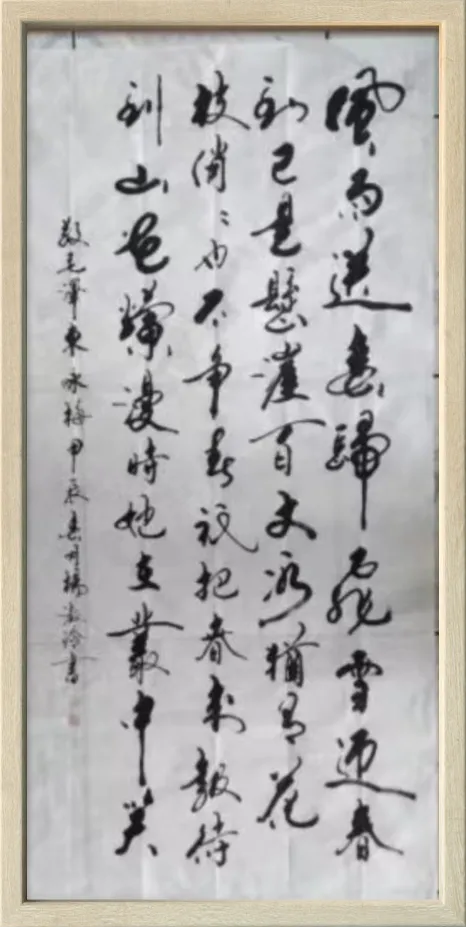 風雨送春歸飛雪迎春
到已是懸崖百丈冰猶有花
枝俏〻也不争春祇把春來報待
到山花爛漫時她在叢中笑
毛澤東咏梅甲辰春月楊書